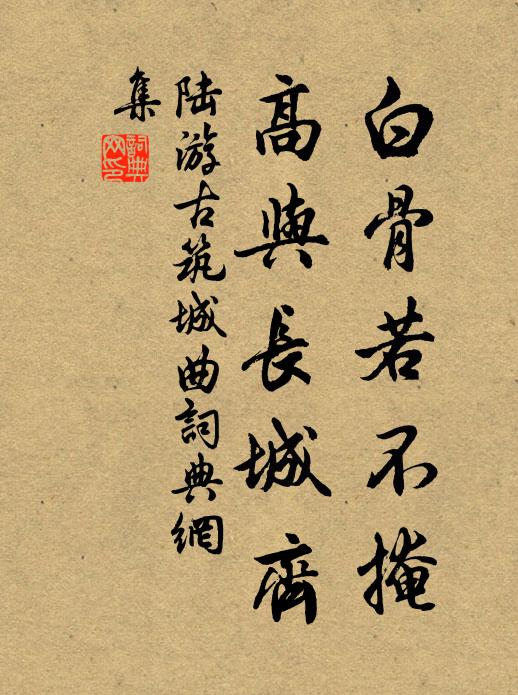 白骨若不掩
高與長城齊
陸游古筑城曲詞典網
集
詞典網印